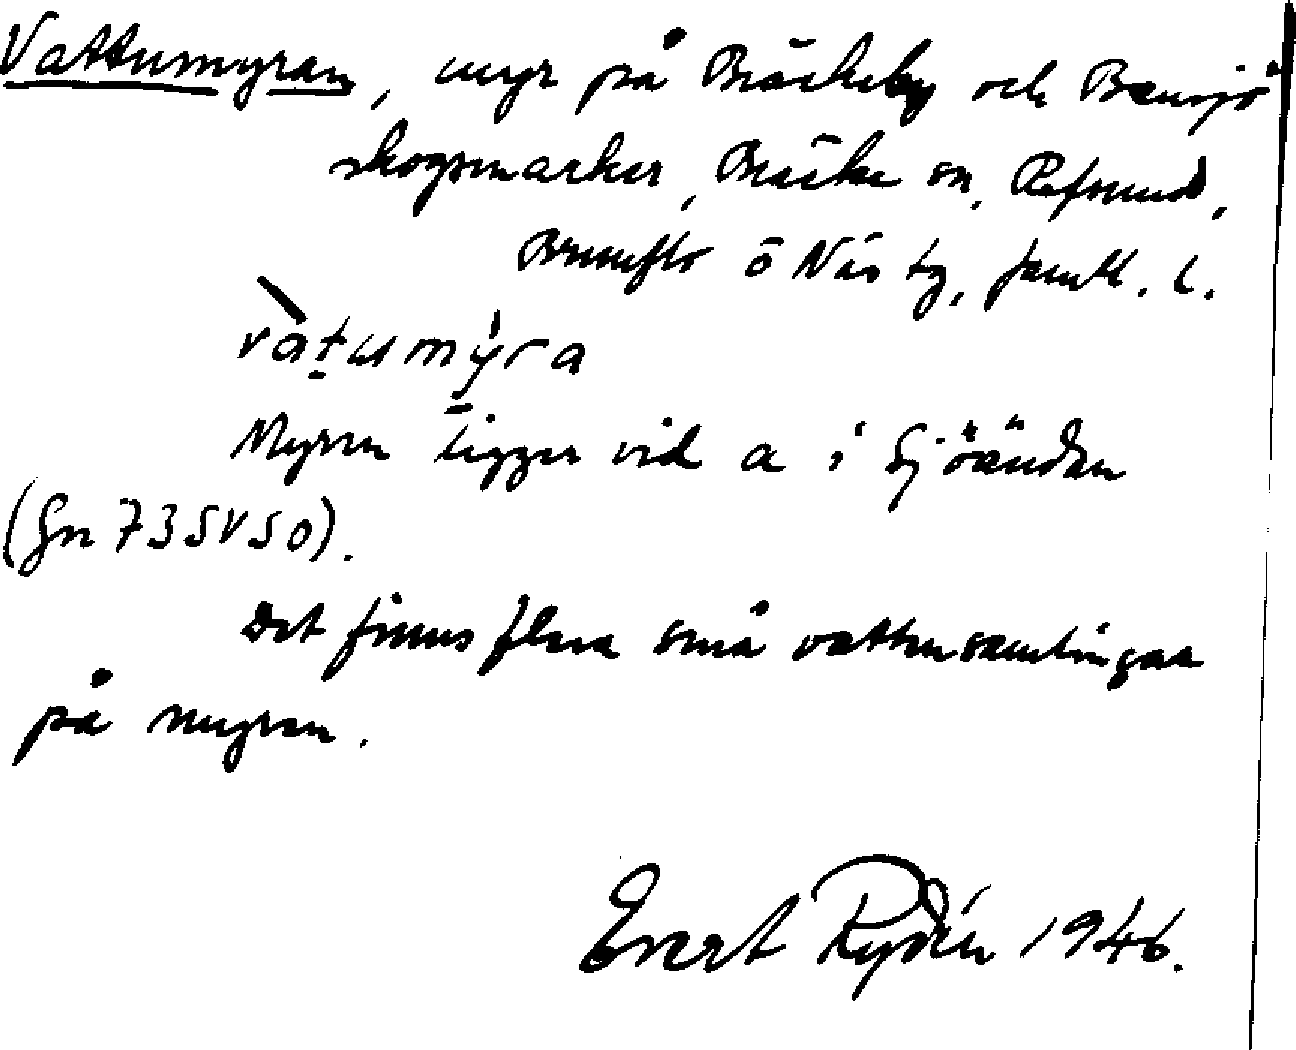 Vattumyran, myr på Bräckeby och Bensjö
skogsmarker, Bräcke sn, Refsund,
Brunflo o Näs tg, Jämtl. l.
vàtumýra
Myren ligger vid a i Sjöänden
(Gn 73SVSO).
Det finns flera små vattusamlingar
på myren.
Evert Rydén 1946.